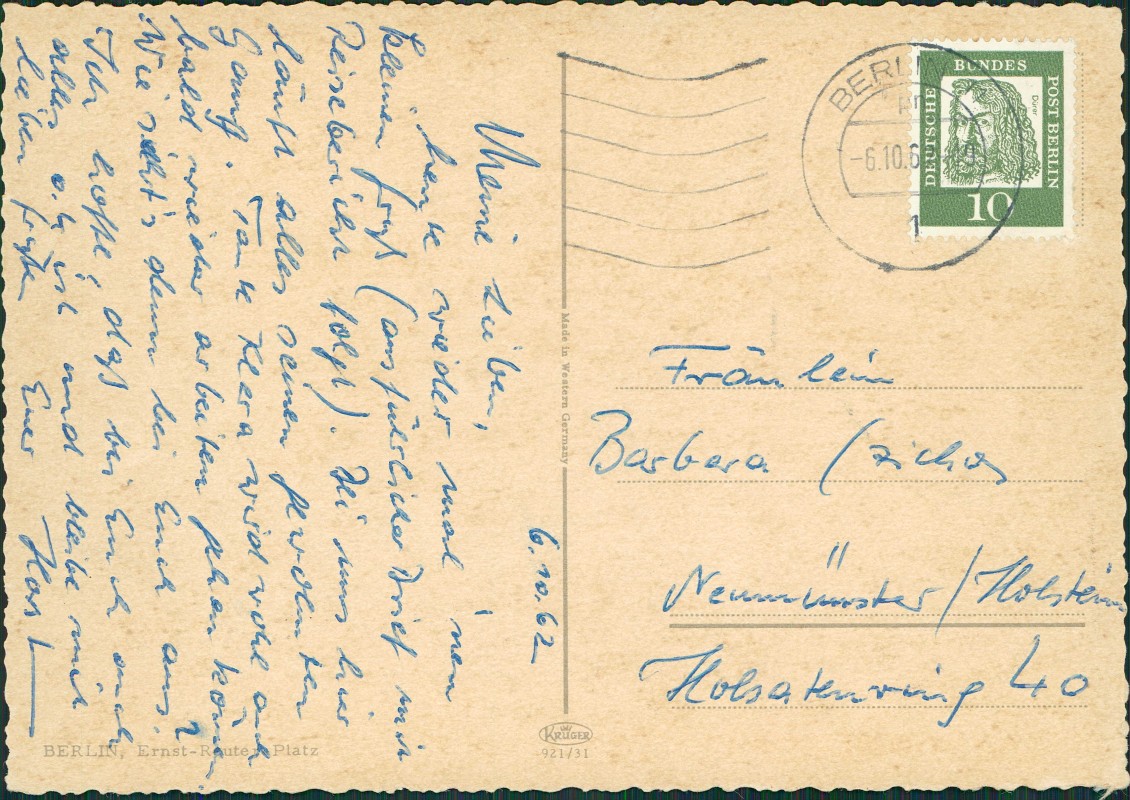 6.10.62
Meine Lieben,
heute wieder mal 'nen
kleinen Gruß (ausführlicher Brief mit
Reisebericht folgt). Bei uns hier
läuft alles seinen gewohnten
Gang. Tante Klara wird wohl auch
bald wieder arbeiten gehen könn
Wie sieht's denn bei Euch aus?
Ich hoffe, daß bei Euch auch
alles o.k. ist und bleibe mit
lieben Grüßen Euer
BERLIN, Ernst-Reuter-Platz
Made in Western Germany
KRÜGER
921/31
BERLIN
-6.10.6
1
DEUTSCHE BUNDES POST BERLIN
Dürer
10
Fräulein
Barbara
Neumünster/Holstein
Holsatenring 40